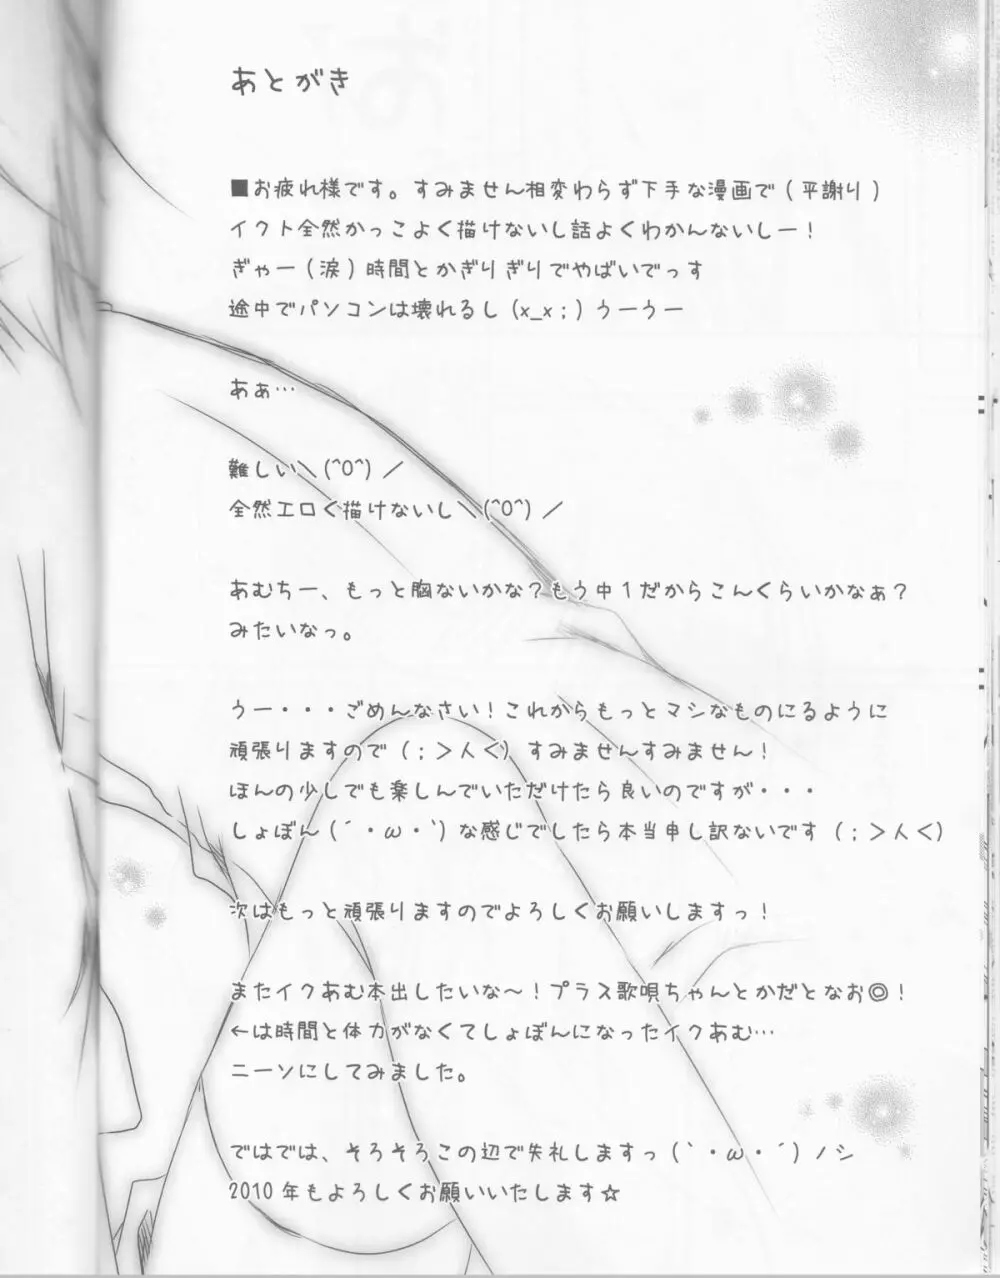 あとがき
■お疲れ様です。すみません相変わらず下手な漫画で(平謝り)
イクト全然かっこよく描けないし話よくわかんないしー!
ぎゃー(涙)時間とかぎりぎりでやばいでっす
途中でパソコンは壊れるし(x_x;)うーうー
あぁ…
難しい＼(^O^)／
全然エロく描けないし＼(^O^)／
あむちー、もっと胸ないかな?もう中1だからこんくらいかなぁ?
みたいなっ。
うー・・・ごめんなさい!これからもっとマシなものにるように
頑張りますので(;＞人＜)すみませんすみません!
ほんの少しでも楽しんでいただけたら良いのですが・・・
しょぼん(´・ω・`)な感じでしたら本当申し訳ないです(;＞人＜)
次はもっと頑張りますのでよろしくお願いしますっ!
またイクあむ本出したいな～!プラス歌唄ちゃんとかだとなお◎!
←は時間と体力がなくてしょぼんになったイクあむ…
ニーソにしてみました。
ではでは、そろそろこの辺で失礼しますっ(｀・ω・´)ノシ
2010年もよろしくお願いいたします☆